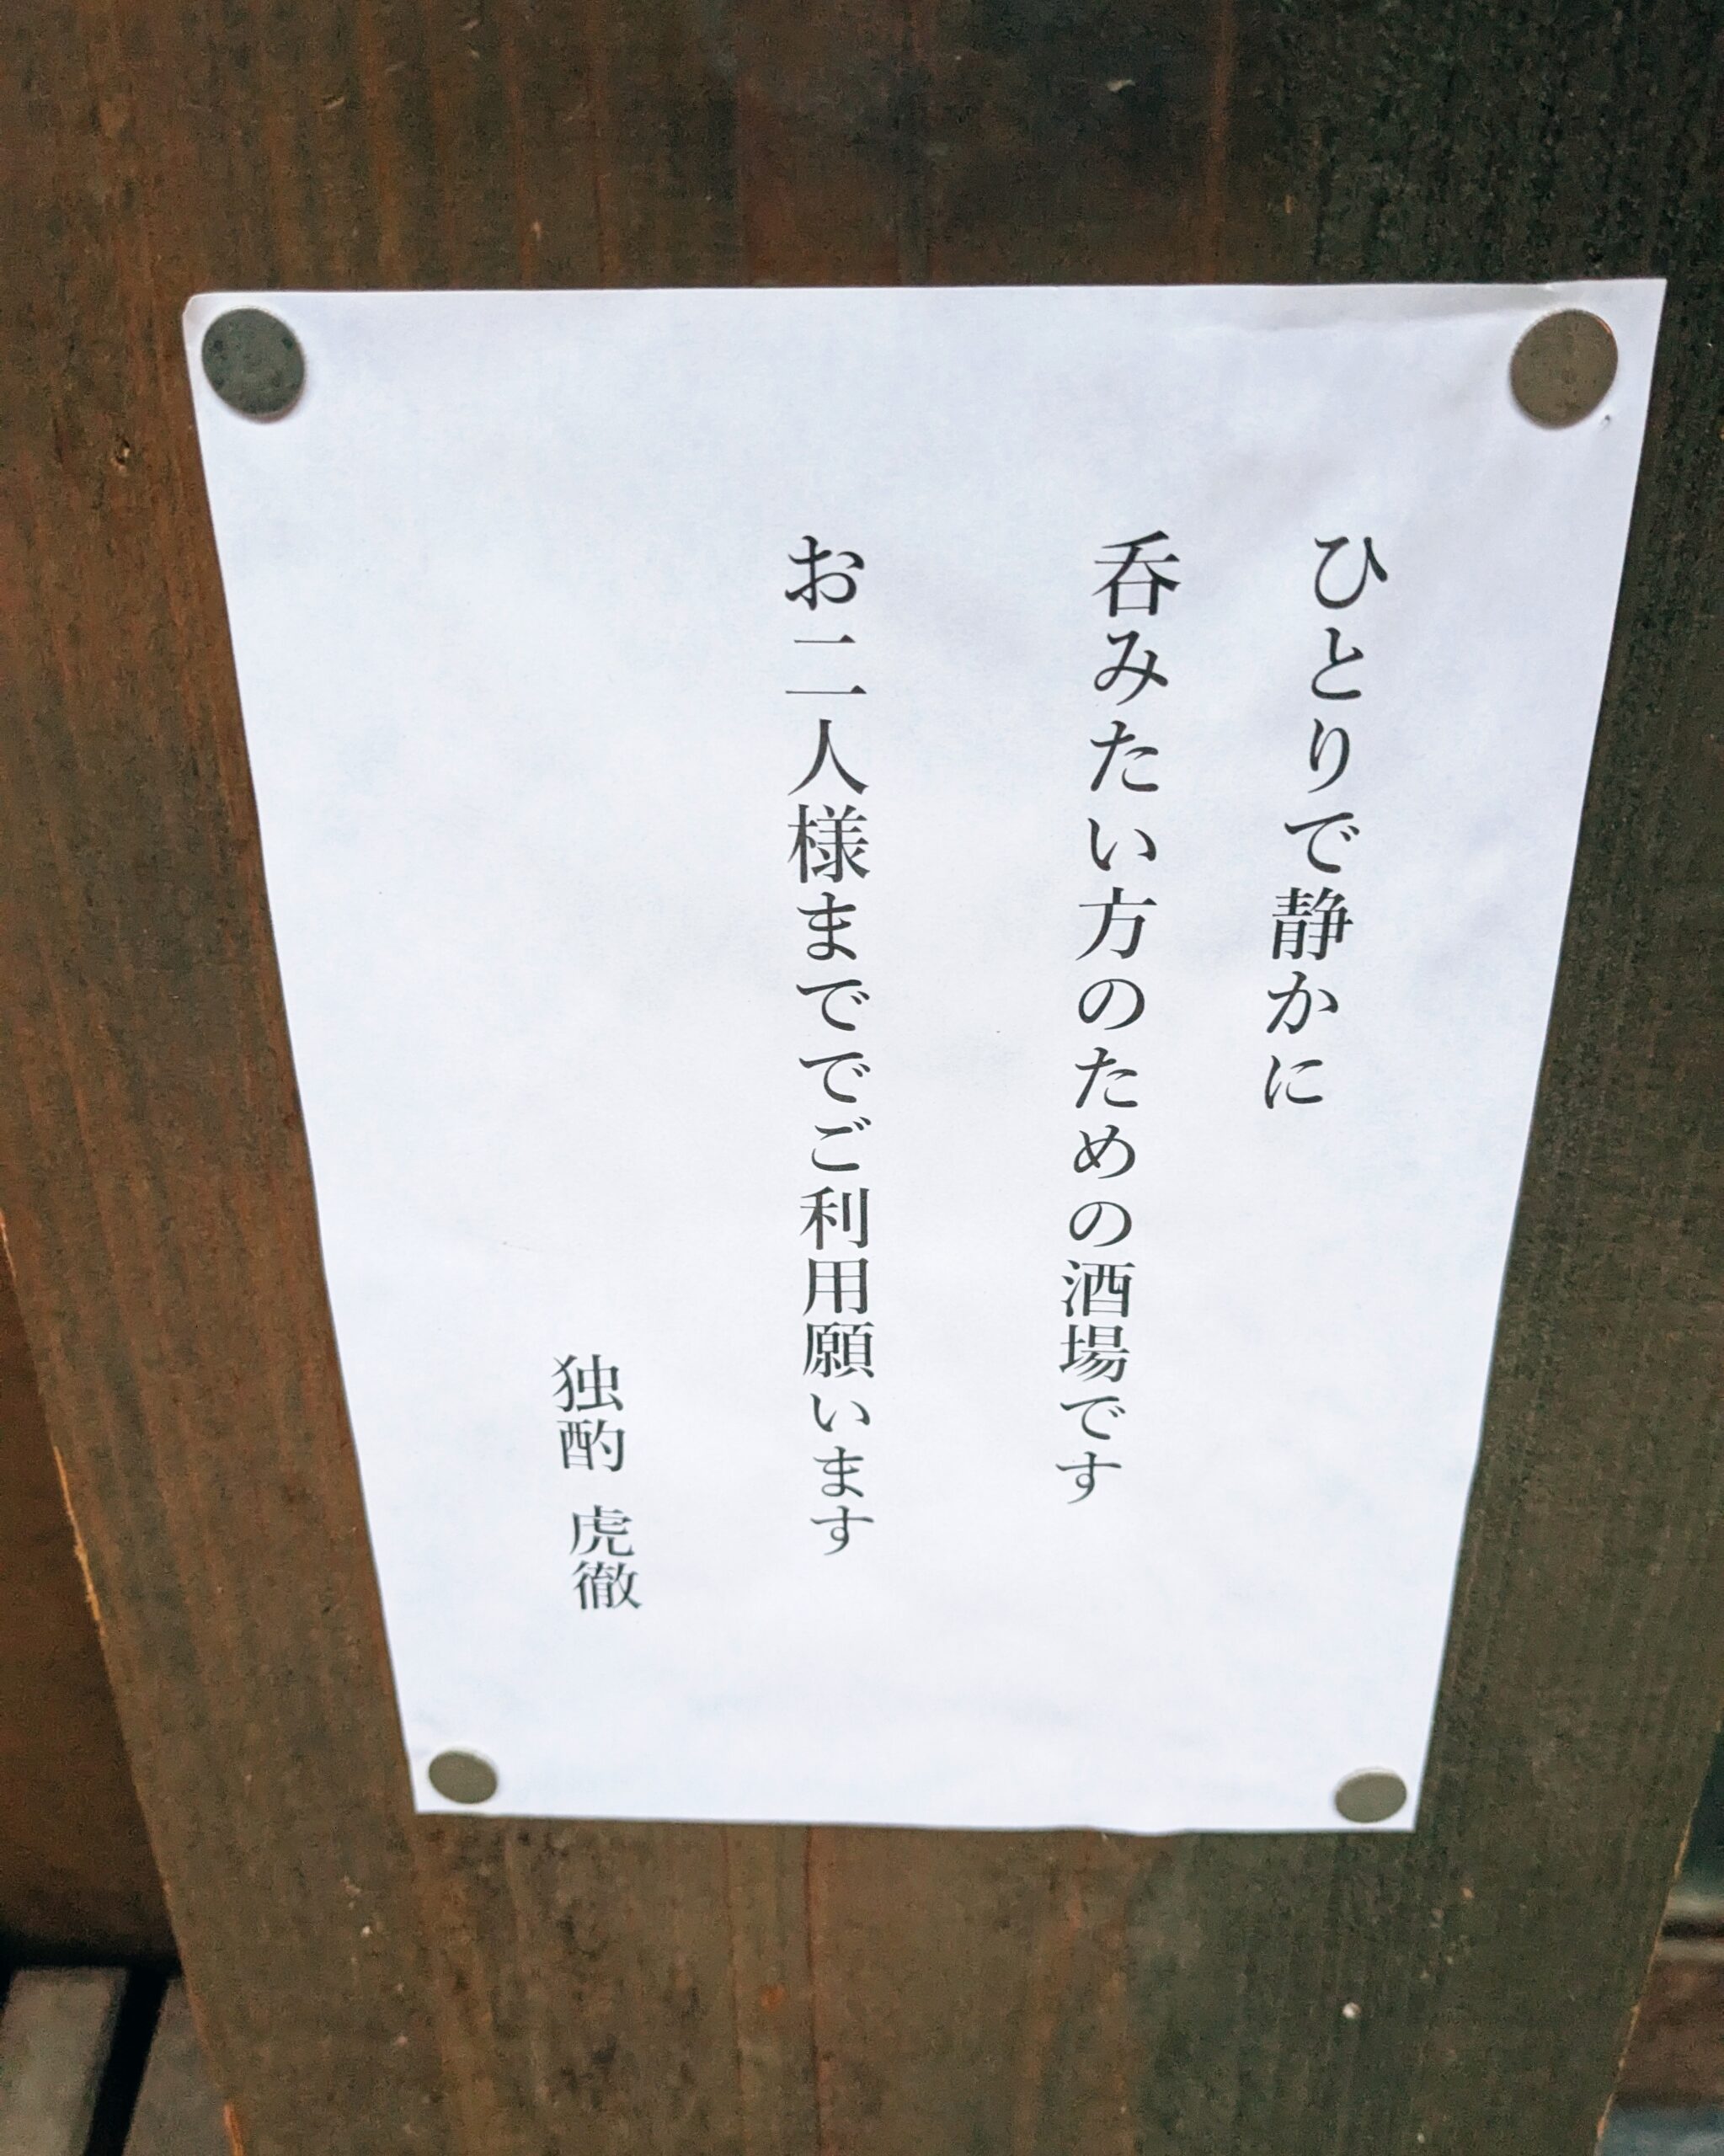 ひとりで静かに
呑みたい方のための酒場です
お二人様まででご利用願います
独酌 虎徹